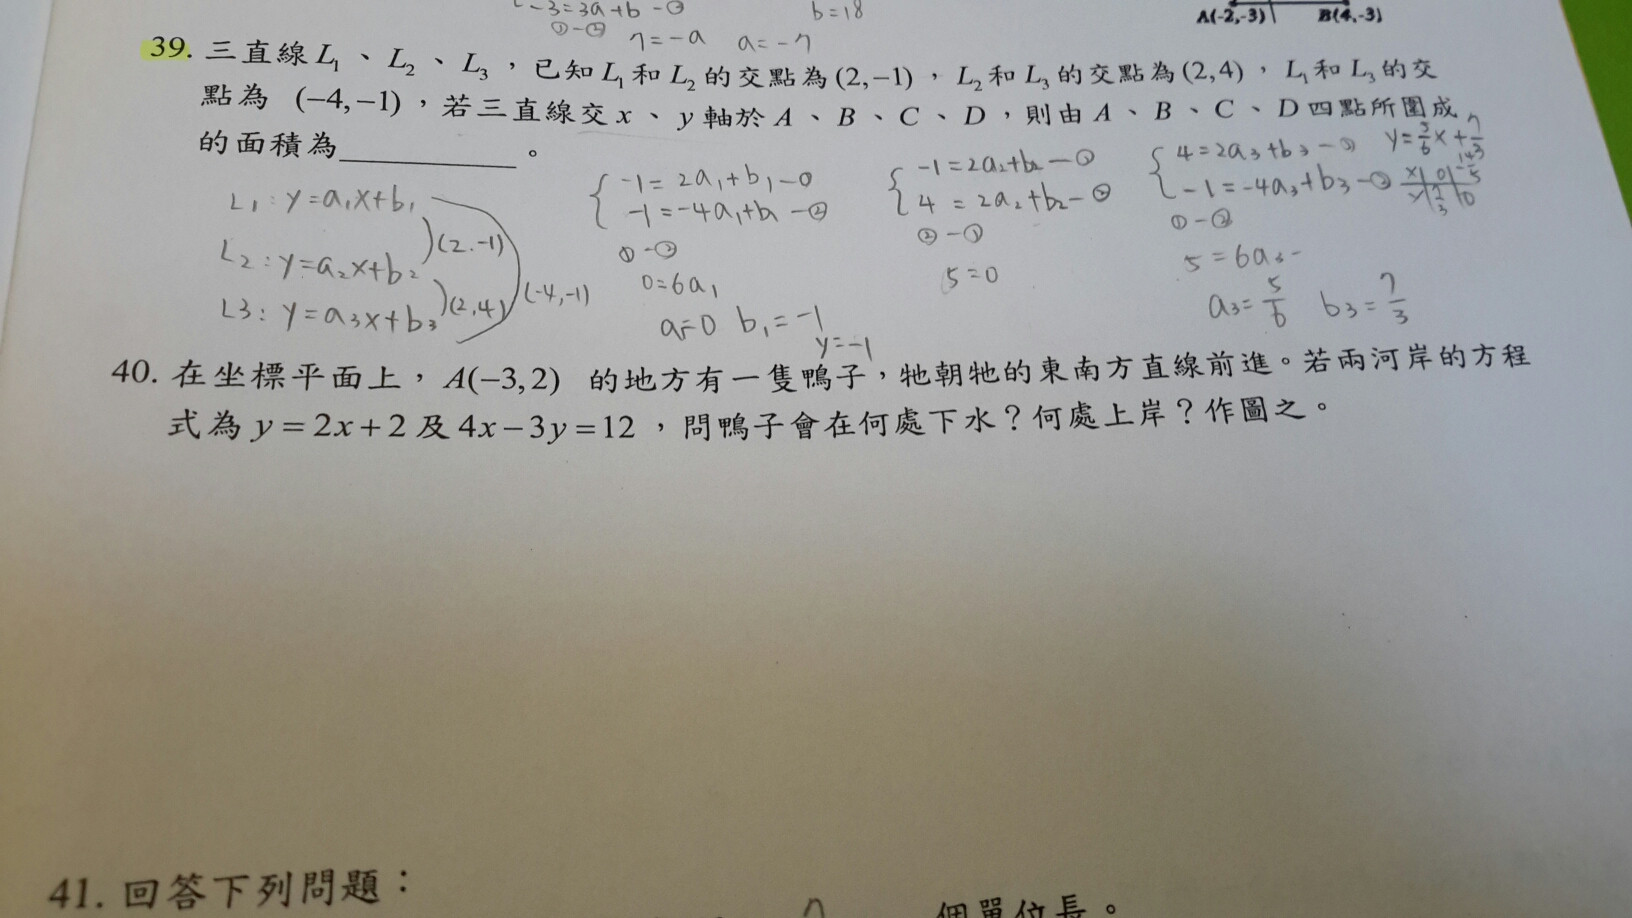 -3=3a+b-②
b=18
①-②
7=-a a=-7
A(-2,-3) B(4,-3)
39. 三直線 L₁、L₂、L₃，已知 L₁ 和 L₂ 的交點為 (2,−1)，L₂ 和 L₃ 的交點為 (2,4)，L₁ 和 L₃ 的交
點為 (−4,−1)，若三直線交 x、y 軸於 A、B、C、D，則由 A、B、C、D 四點所圍成
的面積為__________。
L₁: y=a₁x+b₁
L₂: y=a₂x+b₂
L3: y=a₃x+b₃
(2.-1)
(2,4)
(-4,-1)
-1=2a₁+b₁-①
-1=-4a₁+b₁-②
①-②
0=6a₁
a₁=0 b₁=-1
y=-1
-1=2a₂+b₂-①
4=2a₂+b₂-②
②-①
5=0
4=2a₃+b₃-①
-1=-4a₃+b₃-②
①-②
5=6a₃
a₃=5/6 b₃=7/3
y=5/6x+7/3
x 0 -14/5
y 7/3 0
40. 在坐標平面上，A(−3,2) 的地方有一隻鴨子，牠朝牠的東南方直線前進。若兩河岸的方程
式為 y=2x+2 及 4x−3y=12，問鴨子會在何處下水？何處上岸？作圖之。
41. 回答下列問題：
個單位長。